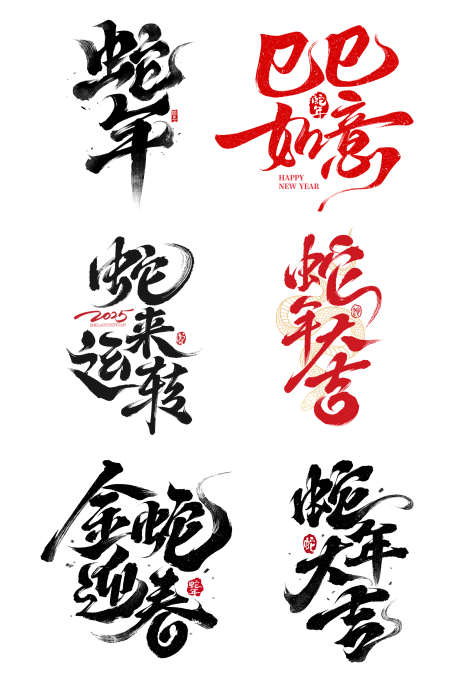 蛇年
巳巳
如意
蛇年
HAPPY
NEW YEAR
蛇来
运转
2025
蛇年大吉
金蛇
迎春
蛇年
蛇年
大吉
蛇